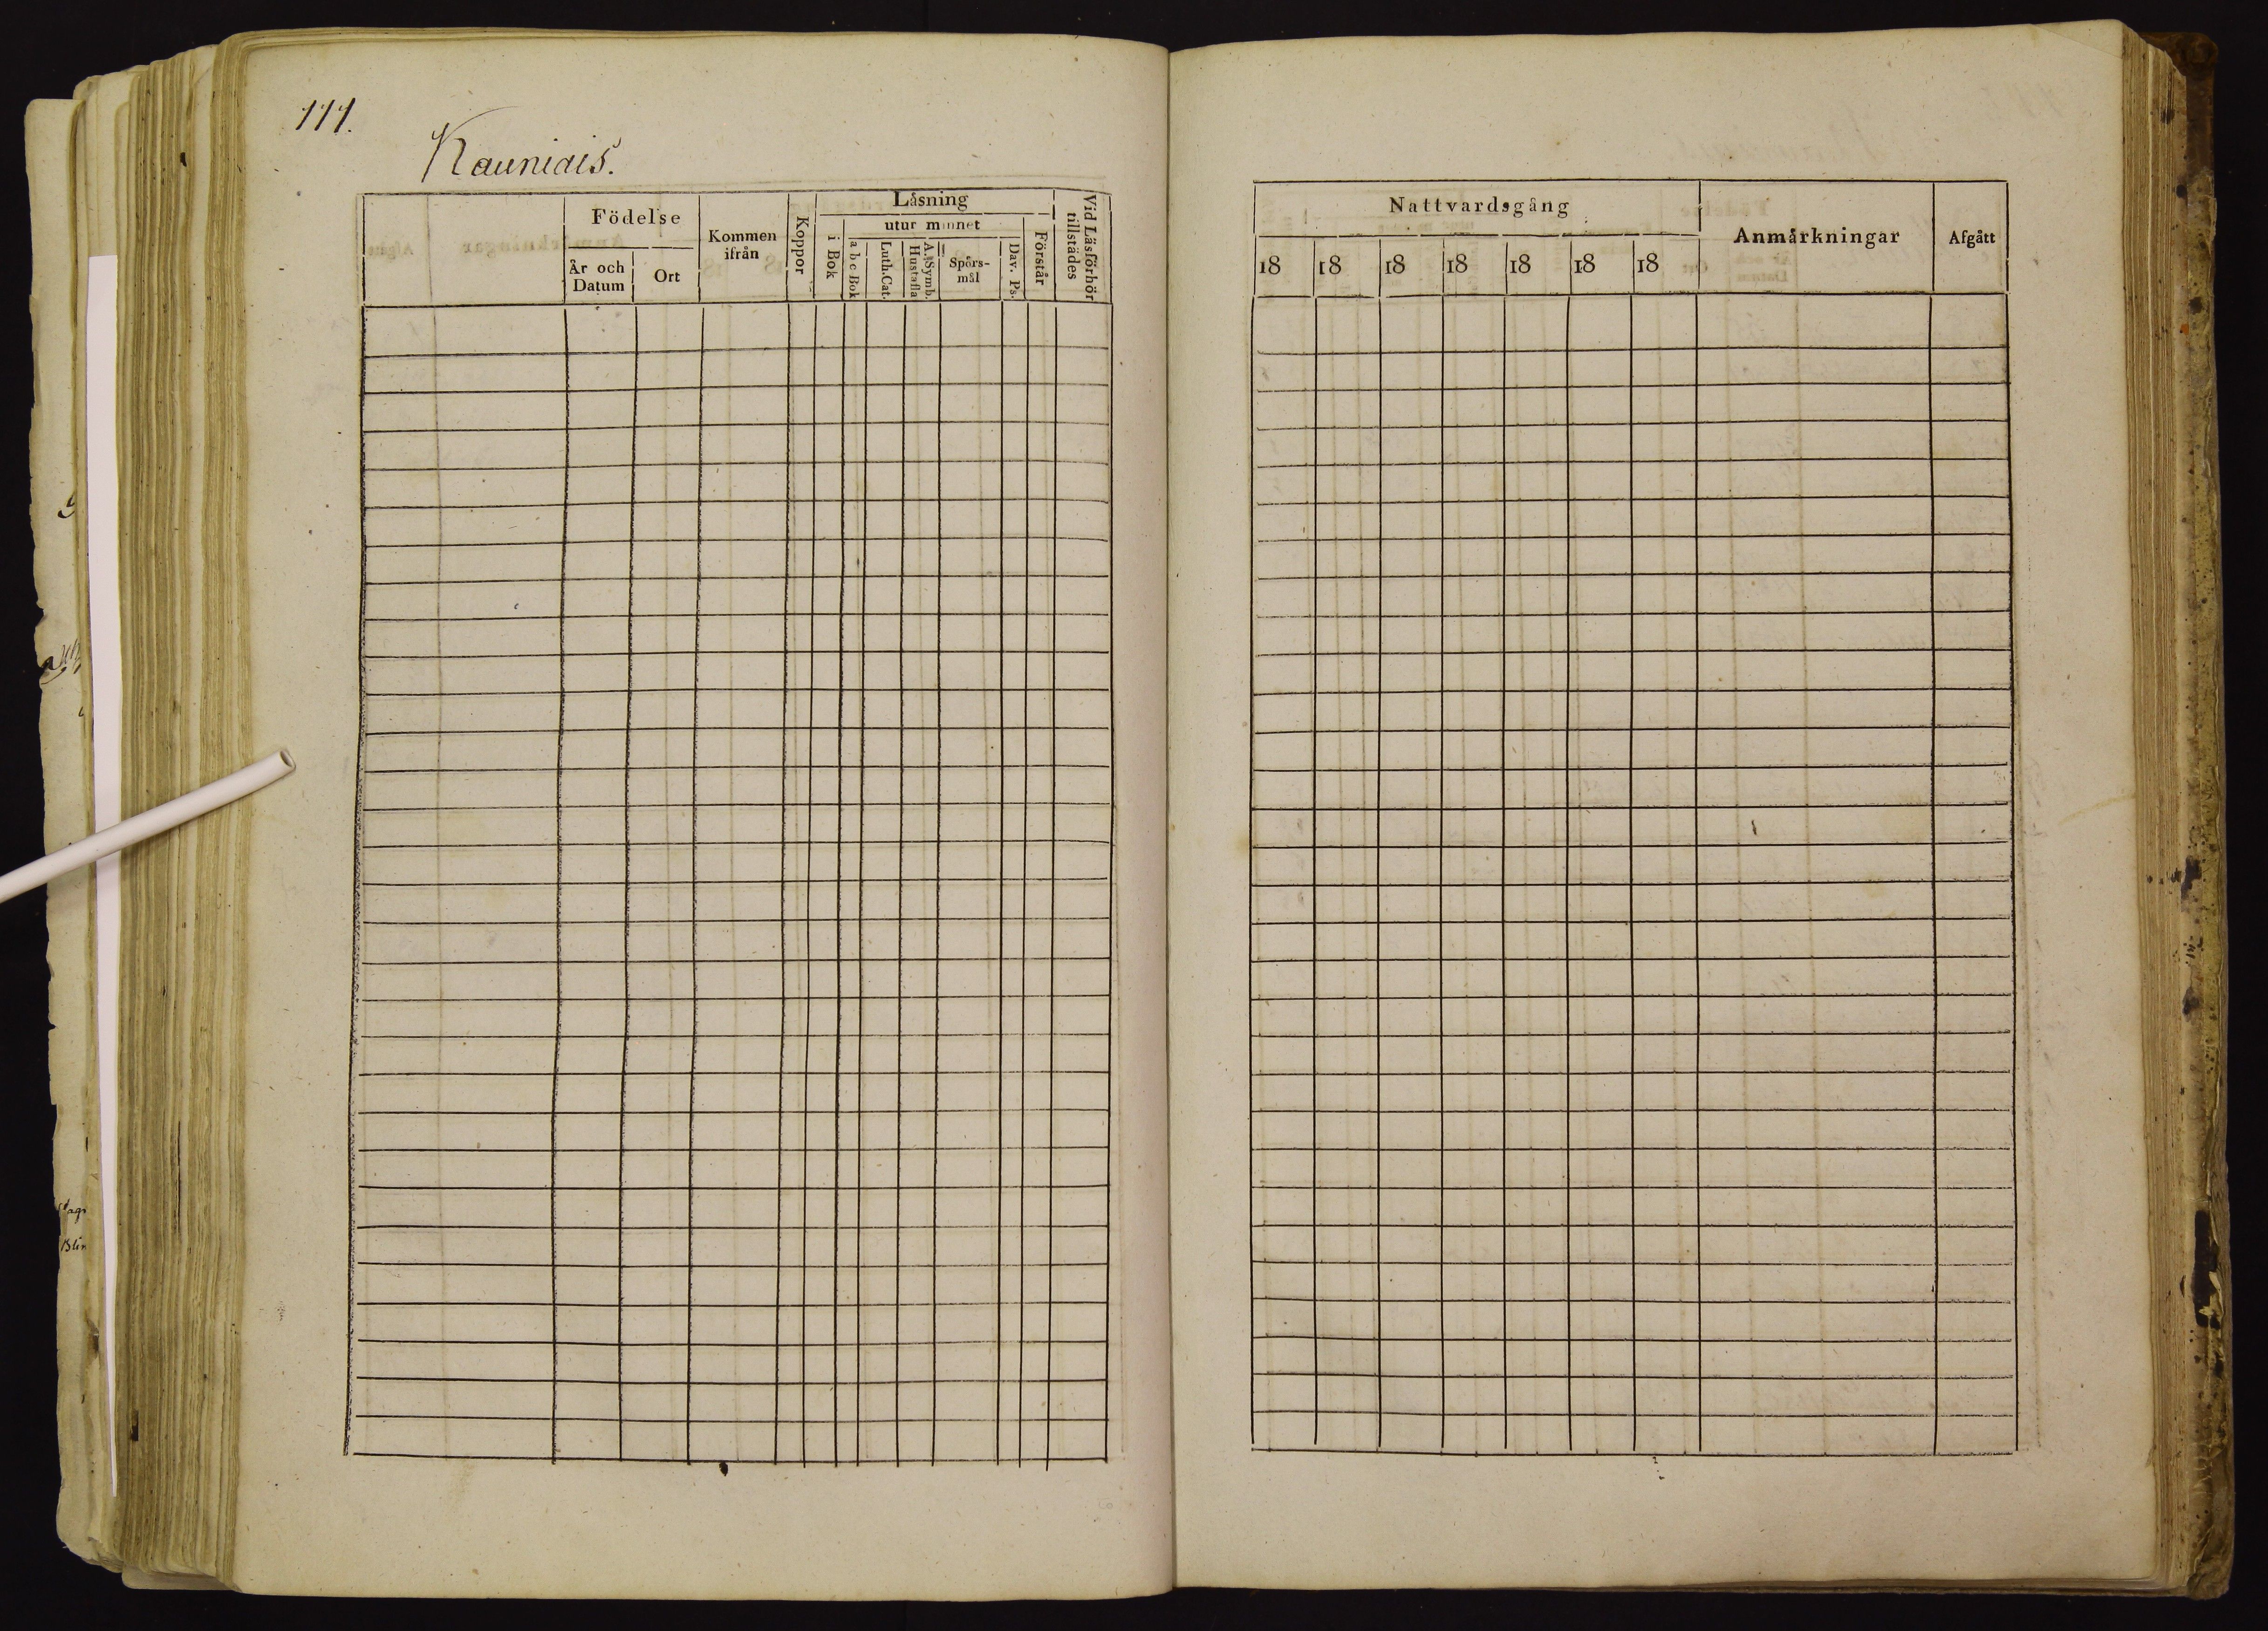 111.
Kauniais.
Födelse
År och Datum
Ort
Kommen ifrån
Koppor
Låsning
i Bok
utur minnet
a b c Bok
Luth. Cat.
A. Symb. Hustafla
Spörs-
mål
Dav. Ps.
Förstår
Vid Läsförhör tillstådes
Nattvardsgång
18 18 18 18 18 18 18
Anmårkningar
Afgått